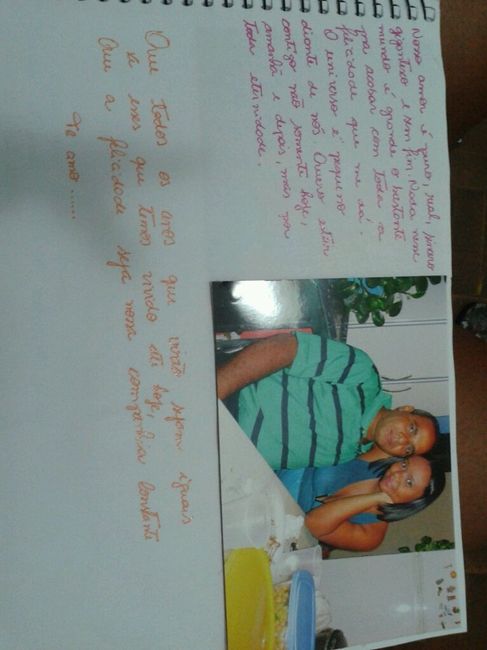 Nosso amor é puro, real, sincero
gigantesco e sem fim. Nada nesse
mundo é grande o bastante
pra acabar com toda a
felicidade que me dá.
O universo é pequeno
diante de nós. Quero estar
contigo não somente hoje,
amanhã e depois, mas por
toda eternidade.
Que todos os anos que virão sejam iguais
a esses que temos vivido até hoje,
Que a felicidade seja nossa companhia constante
Te amo.....